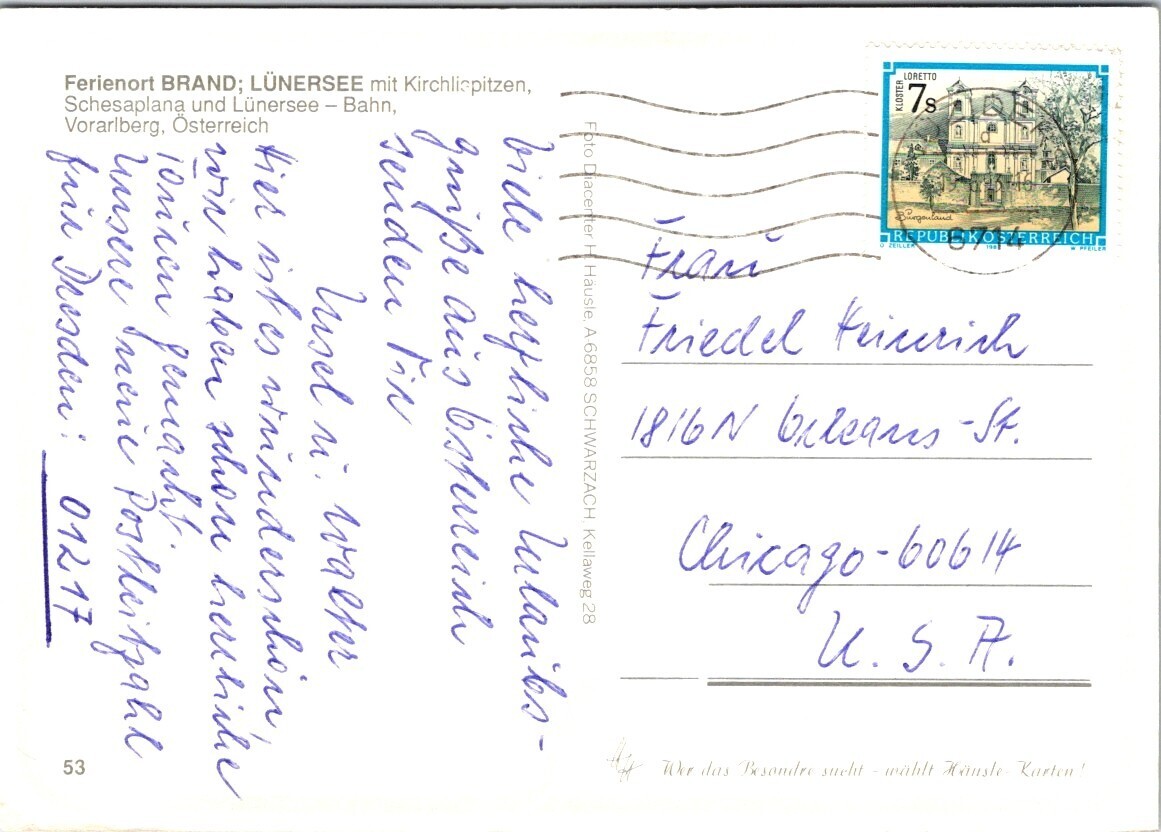 Ferienort BRAND; LÜNERSEE mit Kirchlispitzen,
Schesaplana und Lünersee – Bahn,
Vorarlberg, Österreich
Viele herzliche Urlaubs-
grüße aus Österreich
senden Dir
Ursel u. Walter
Hier ist es wunderschön,
wir haben schon herrliche
Touren gemacht.
Unsere neue Postleitzahl
für Dresden: 01217
53
Foto Diacenter H. Häusle, A-6858 SCHWARZACH, Kellaweg 28
KLOSTER LORETTO
7s
Burgenland
REPUBLIK ÖSTERREICH
O. ZEILLER
W. PFEILER
6714
Frau
Friedel Heinrich
1816 N Orleans-St.
Chicago-60614
U. S. A.
Wer das Besondre sucht - wählt Häusle-Karten!